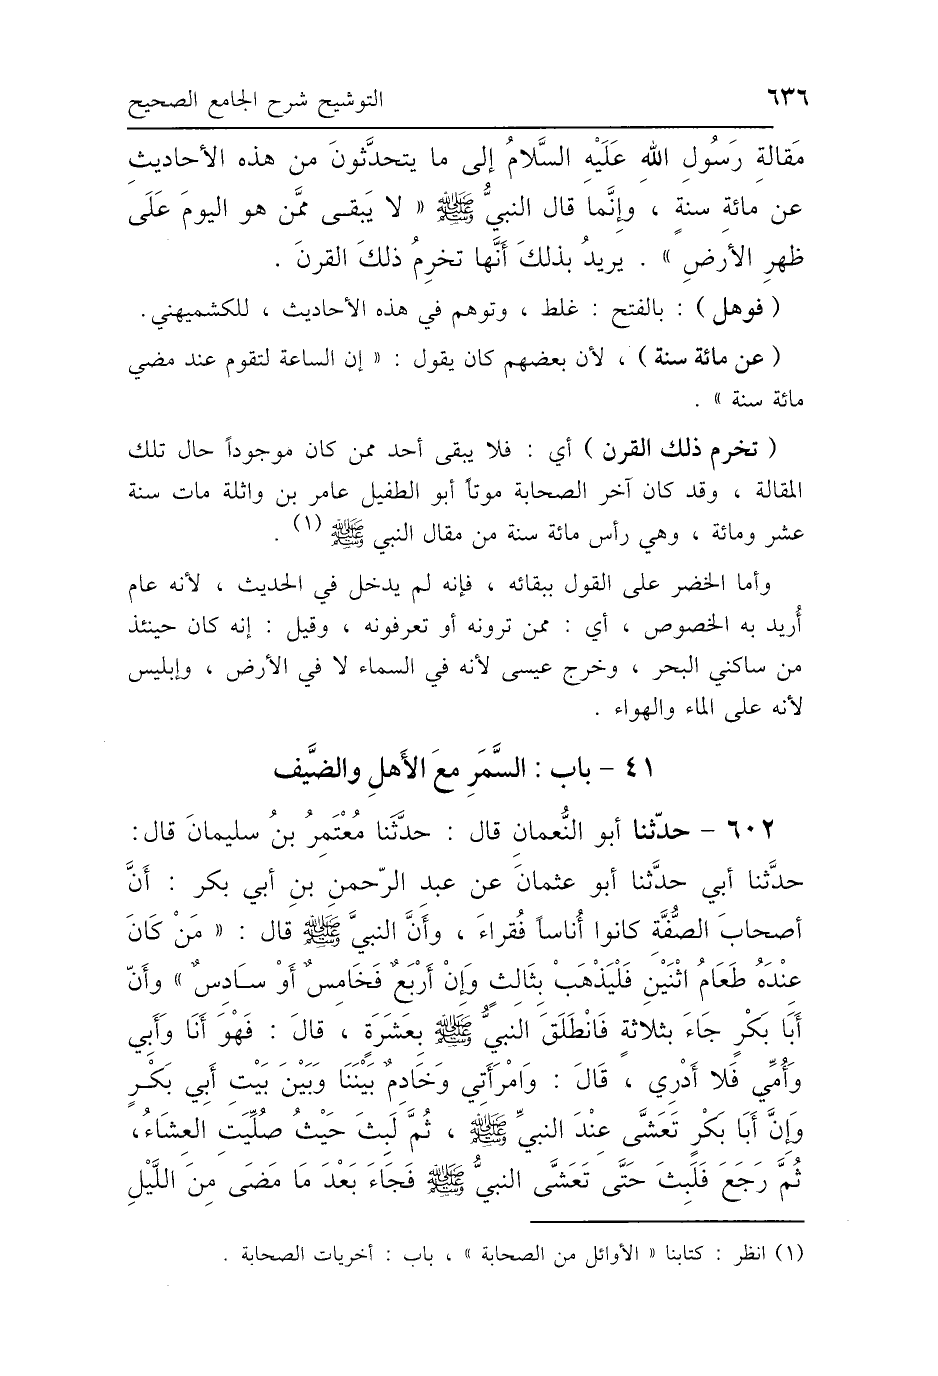 ٦٣٦ التوشيح شرح الجامع الصحيح
مَقالةِ رَسُولِ اللهِ عَلَيْهِ السَّلامُ إلى ما يتحدَّثونَ من هذه الأحاديثِ
عن مائةِ سنةٍ ، وإنَّما قال النبيُّ ﷺ « لا يَبقـى ممَّن هو اليومَ عَلَى
ظهرِ الأرضِ » . يريدُ بذلكَ أنَّها تخرِمُ ذلكَ القرنَ .
( فوهل ) : بالفتح : غلط ، وتوهم في هذه الأحاديث ، للكشميهني .
( عن مائة سنة ) ، لأن بعضهم كان يقول : « إن الساعة لتقوم عند مضي
مائة سنة » .
( تخرم ذلك القرن ) أي : فلا يبقى أحد ممن كان موجوداً حال تلك
المقالة ، وقد كان آخر الصحابة موتاً أبو الطفيل عامر بن واثلة مات سنة
عشر ومائة ، وهي رأس مائة سنة من مقال النبي ﷺ (١) .
وأما الخضر على القول ببقائه ، فإنه لم يدخل في الحديث ، لأنه عام
أُريد به الخصوص ، أي : ممن ترونه أو تعرفونه ، وقيل : إنه كان حينئذ
من ساكني البحر ، وخرج عيسى لأنه في السماء لا في الأرض ، وإبليس
لأنه على الماء والهواء .
٤١ - باب : السَّمَرِ معَ الأَهلِ والضَّيف
٦٠٢ - حدّثنا أبو النُّعمان قال : حدَّثَنا مُعْتَمِرُ بنُ سليمانَ قال :
حدَّثنا أبي حدَّثنا أبو عثمانَ عن عبدِ الرّحمنِ بنِ أبي بكر : أنَّ
أصحابَ الصُّفَّة كانوا أُناساً فُقراءَ ، وأنَّ النبيَّ ﷺ قال : « مَنْ كَانَ
عِنْدَهُ طَعَامُ اثْنَيْنِ فَلْيَذْهَبْ بِثَالِثٍ وَإِنْ أَرْبَعٌ فَخَامِسٌ أَوْ سـادِسٌ » وأنّ
أَبَا بَكْرٍ جَاءَ بثلاثةٍ فَانْطَلَقَ النبيُّ ﷺ بِعَشَرَةٍ ، قالَ : فَهْوَ أَنَا وَأبِي
وَأُمِّي فَلا أدْرِي ، قَالَ : وَامْرَأَتِي وَخَادِمٌ بَيْنَنَا وَبَيْنَ بَيْتِ أَبِي بَكْـرٍ
وَإِنَّ أَبَا بَكْرٍ تَعَشَّى عِنْدَ النبيِّ ﷺ ، ثُمَّ لَبِثَ حَيْثُ صُلِّيَتِ العِشَاءُ ،
ثُمَّ رَجَعَ فَلَبِثَ حَتَّى تَعَشَّى النبيُّ ﷺ فَجَاءَ بَعْدَ مَا مَضَى مِنَ اللَّيْلِ
(١) انظر : كتابنا « الأوائل من الصحابة » ، باب : أخريات الصحابة .